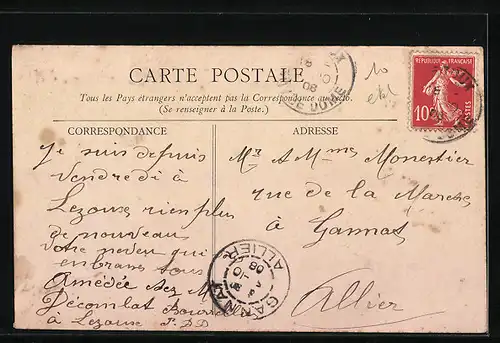 CARTE POSTALE
Tous les Pays étrangers n'acceptent pas la Correspondance au recto.
(Se renseigner à la Poste.)
CORRESPONDANCE
ADRESSE
REPUBLIQUE FRANÇAISE
10
POSTES
10
Je suis depuis
vendredi à
Lezoux rien plus
de nouveau
votre neveu qui
embrasse vous
Amédée chez M
Décombat
à Lezoux P. DD
Mr & Mme Monestier
rue de la Marche
à Gannat
Allier
GANNAT
ALLIER
08